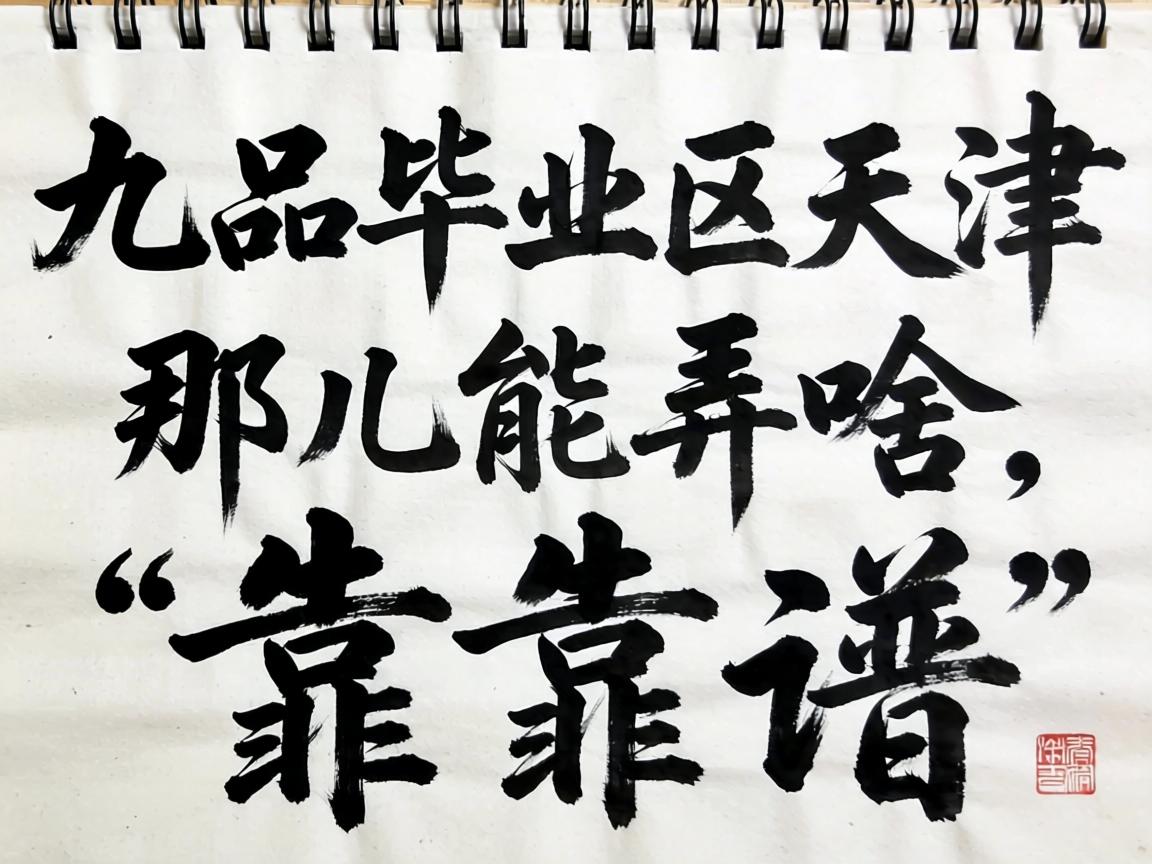 九品毕业区天津
那儿能弄啥，
“靠靠谱”